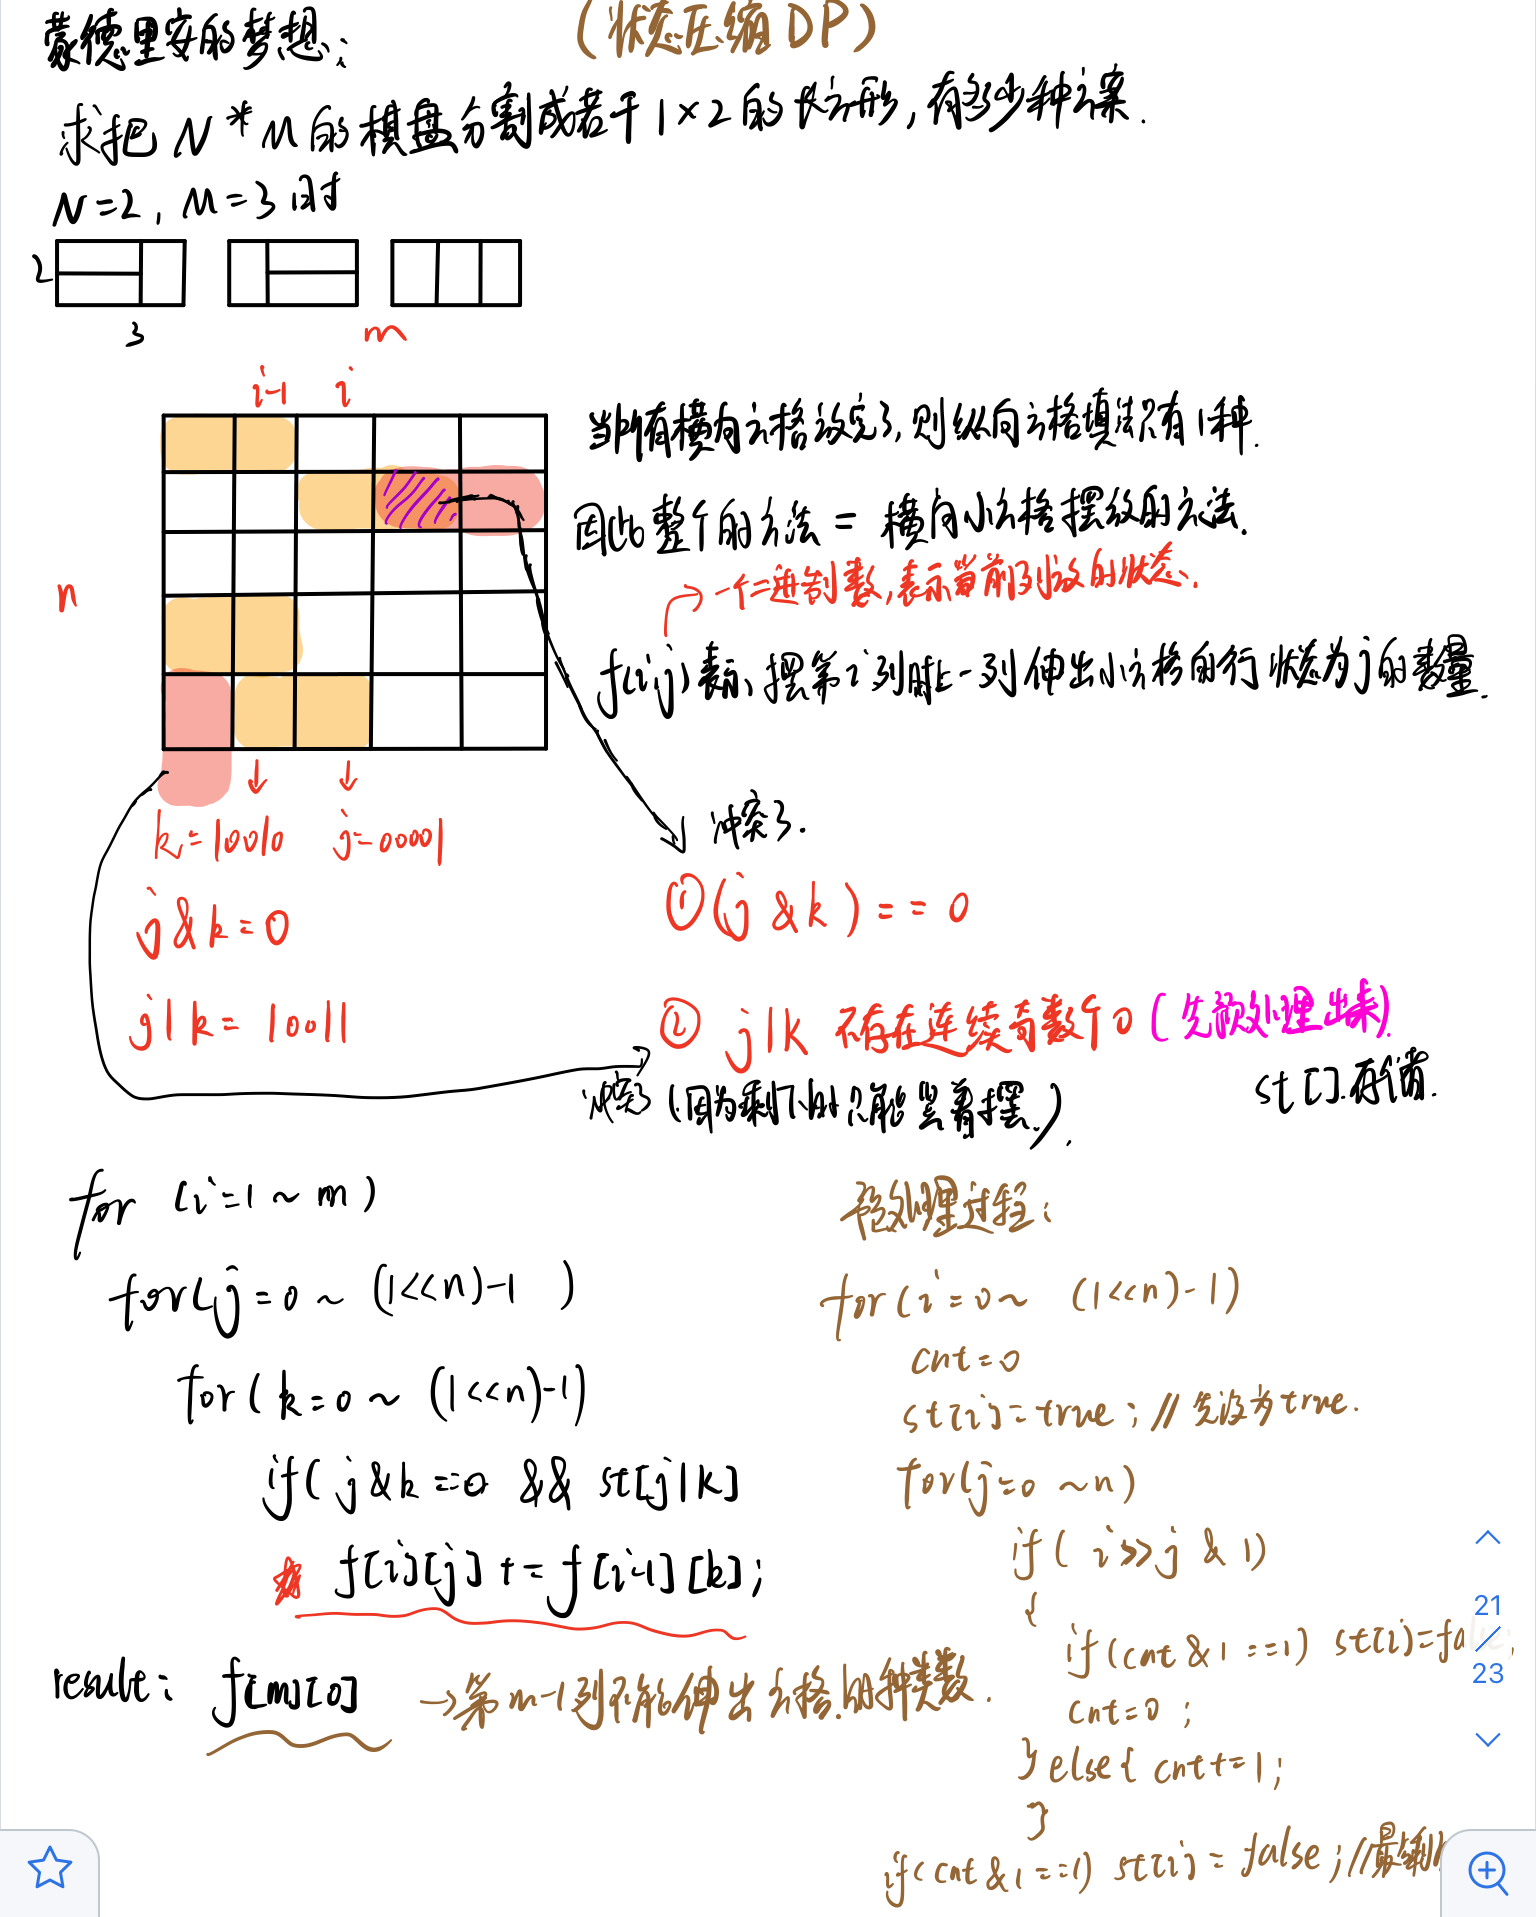 蒙德里安的梦想:
(状态压缩DP)
求把 N*M的棋盘分割成若干1×2的长方形,有多少种方案.
N=2, M=3时
2
3
m
i-1 i
n
当所有横向方格放完了,则纵向方格填法只有1种.
因此整个的方法 = 横向小方格摆放的方法.
→一个二进制数,表示当前列放的状态.
f(i,j)表示 摆第i列时上一列伸出小方格的行状态为j的数量.
k=10010 j=00001
j&k=0
j|k=10011
冲突了.
①(j &k)==0
② j|k 不存在连续奇数个0(先预处理出来)
st[].存储.
冲突了(因为剩下的只能竖着摆.).
for (i=1~m)
for(j=0~ (1<<n)-1 )
for(k=0~ (1<<n)-1)
if( j&k==0 && st[j|k]
f[i][j] += f[i-1][k];
result: f[m][0] →第m-1列不能伸出方格的种类数.
预处理过程:
for(i=0~ (1<<n)-1)
cnt=0
st[i]=true; // 先设为true.
for(j=0 ~n)
if( i>>j & 1)
{
if(cnt&1==1) st[i]=false;
cnt=0;
}else{ cnt+=1;
}
if(cnt&1==1) st[i]=false; //最
21
23